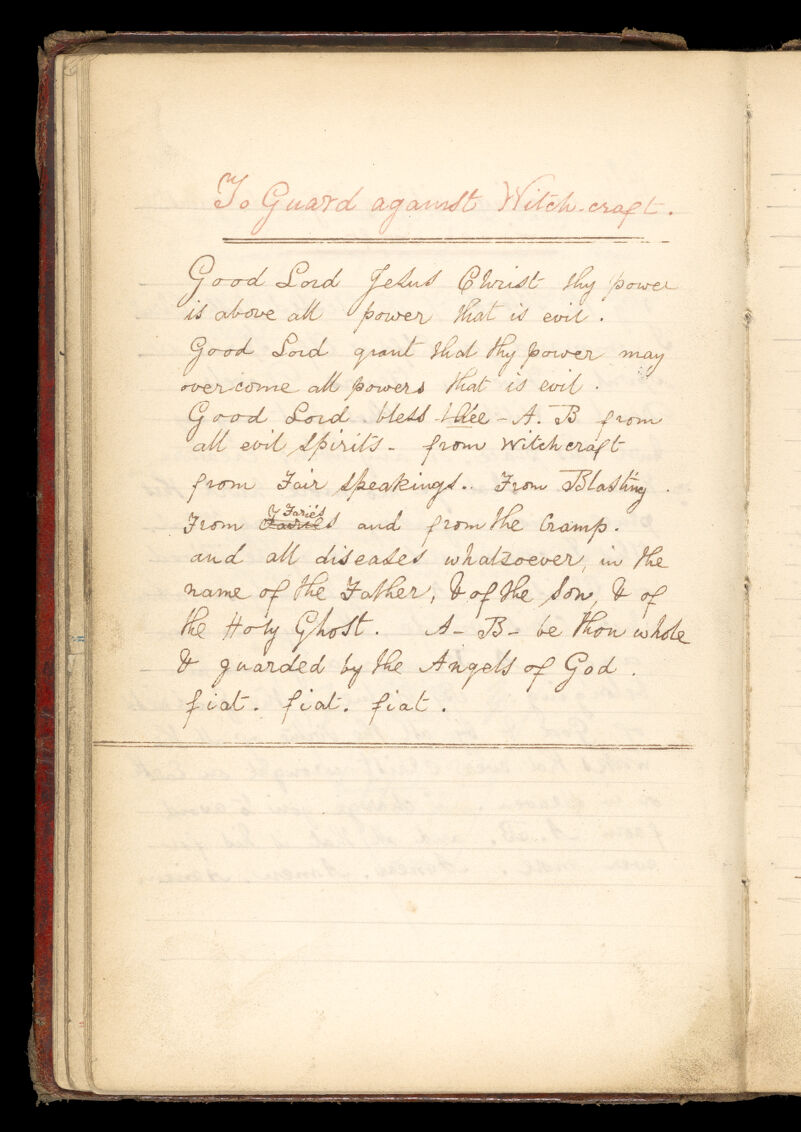 To Guard against Witch-craft.
Good Lord Jesus Christ thy power
is above all power that is evil.
Good Lord grant that thy power may
overcome all powers that is evil.
Good Lord bless thee - A. B from
all evil spirits - from Witchcraft
from Fair speakings.. From Blasting.
From Faries and from the Cramp.
and all diseases whatsoever, in the
name of the Father, & of the Son, & of
the Holy Ghost. A - B - be thou whole
& guarded by the Angels of God.
fiat. fiat. fiat.